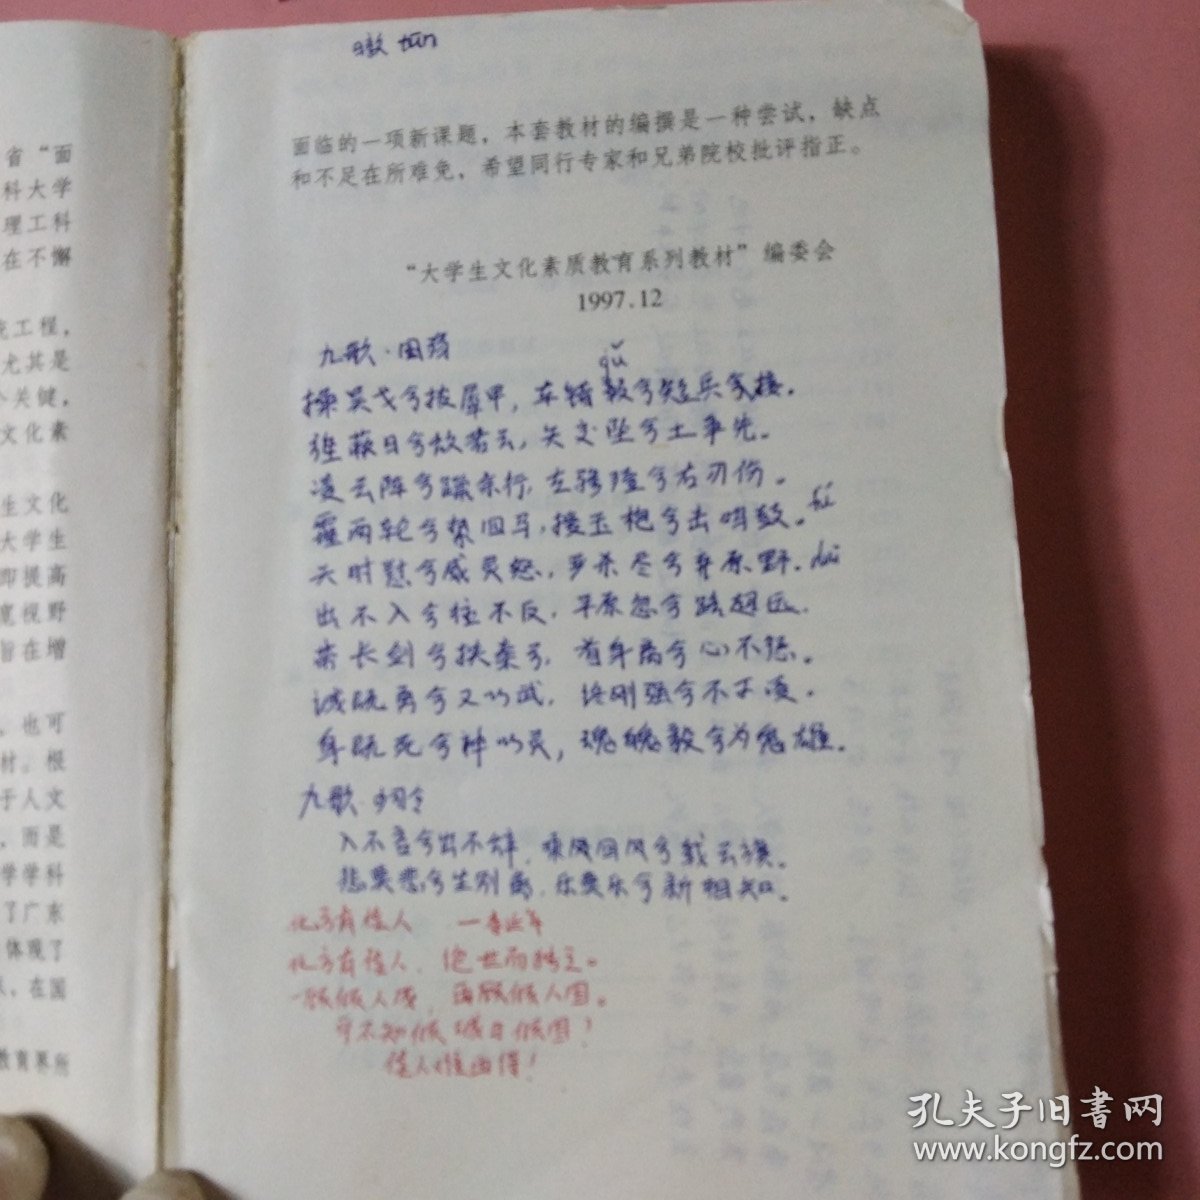 省“面
科大学
理工科
在不懈
工程，
尤其是
个关键，
文化素
生文化
大学生
即提高
宽视野
旨在增
，也可
材。根
于人文
，而是
学学科
了广东
体现了
，在国
教育界所
暾 tūn
面临的一项新课题，本套教材的编撰是一种尝试，缺点
和不足在所难免，希望同行专家和兄弟院校批评指正。
“大学生文化素质教育系列教材”编委会
1997.12
九歌·国殇
gǔ
操吴戈兮披犀甲，车错毂兮短兵接。
旌蔽日兮敌若云，矢交坠兮士争先。
凌云阵兮躐余行，左骖殪兮右刃伤。
霾两轮兮絷四马，援玉枹兮击鸣鼓。fú
天时怼兮威灵怒，严杀尽兮弃原野。duì
出不入兮往不反，平原忽兮路超远。
带长剑兮挟秦弓，首身离兮心不惩。
诚既勇兮又以武，终刚强兮不可凌。
身既死兮神以灵，魂魄毅兮为鬼雄。
九歌·
入不言兮出不辞，乘风回风兮载云旗。
悲莫悲兮生别离，乐莫乐兮新相知。
北方有佳人 一李延年
北方有佳人，绝世而独立。
一顾倾人城，再顾倾人国。
宁不知倾城与倾国？
佳人难再得！
孔夫子旧书网
www.kongfz.com